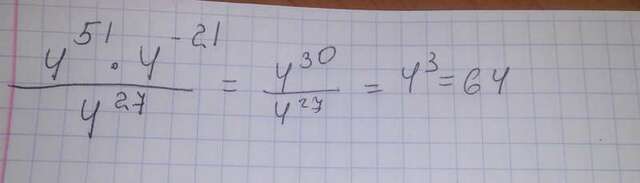 4^51 · 4^-21 / 4^27 = 4^30 / 4^27 = 4^3 = 64